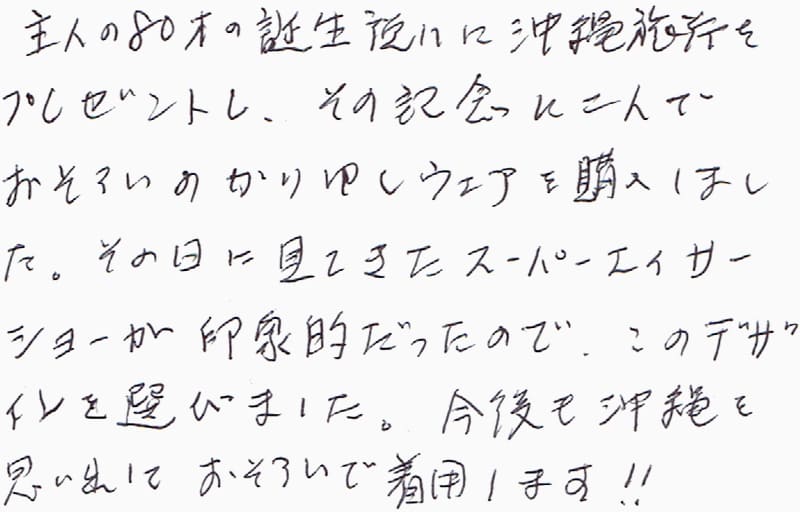 主人の80才の誕生祝いに沖縄旅行を
プレゼントし、その記念に二人で
おそろいのかりゆしウェアを購入しまし
た。その日に見てきたスーパーエイサー
ショーが印象的だったので、このデザ
インを選びました。今後も沖縄を
思い出しておそろいで着用します!!